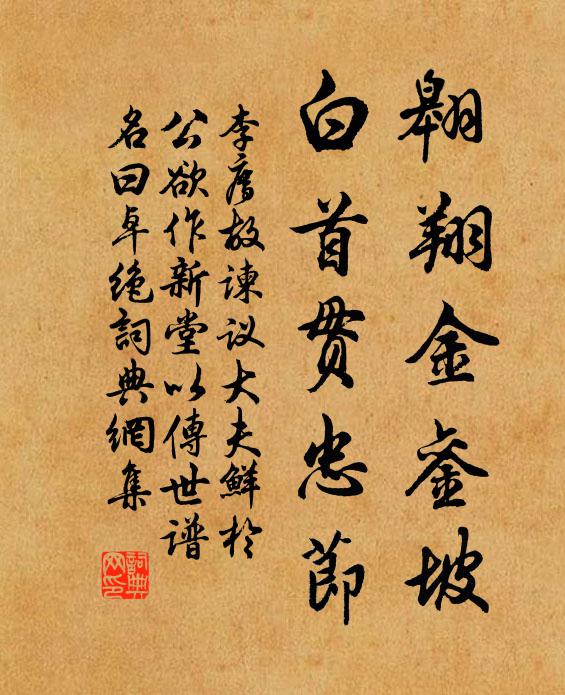 翱翔金銮坡
白首贯忠節
李廌故谏议大夫鮮於
公欲作新堂以傳世谱
名曰卓绝詞典網集
詞典
网印